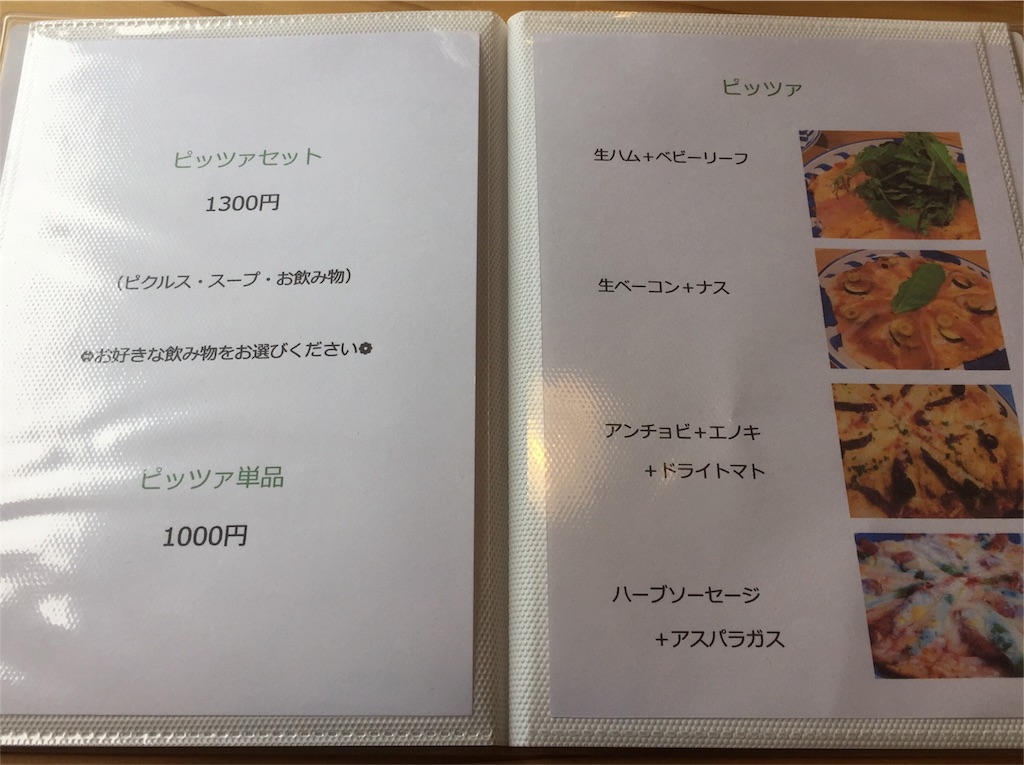 ピッツァセット
1300円
(ピクルス・スープ・お飲み物)
❁お好きな飲み物をお選びください❁
ピッツァ単品
1000円
ピッツァ
生ハム+ベビーリーフ
生ベーコン+ナス
アンチョビ+エノキ
+ドライトマト
ハーブソーセージ
+アスパラガス